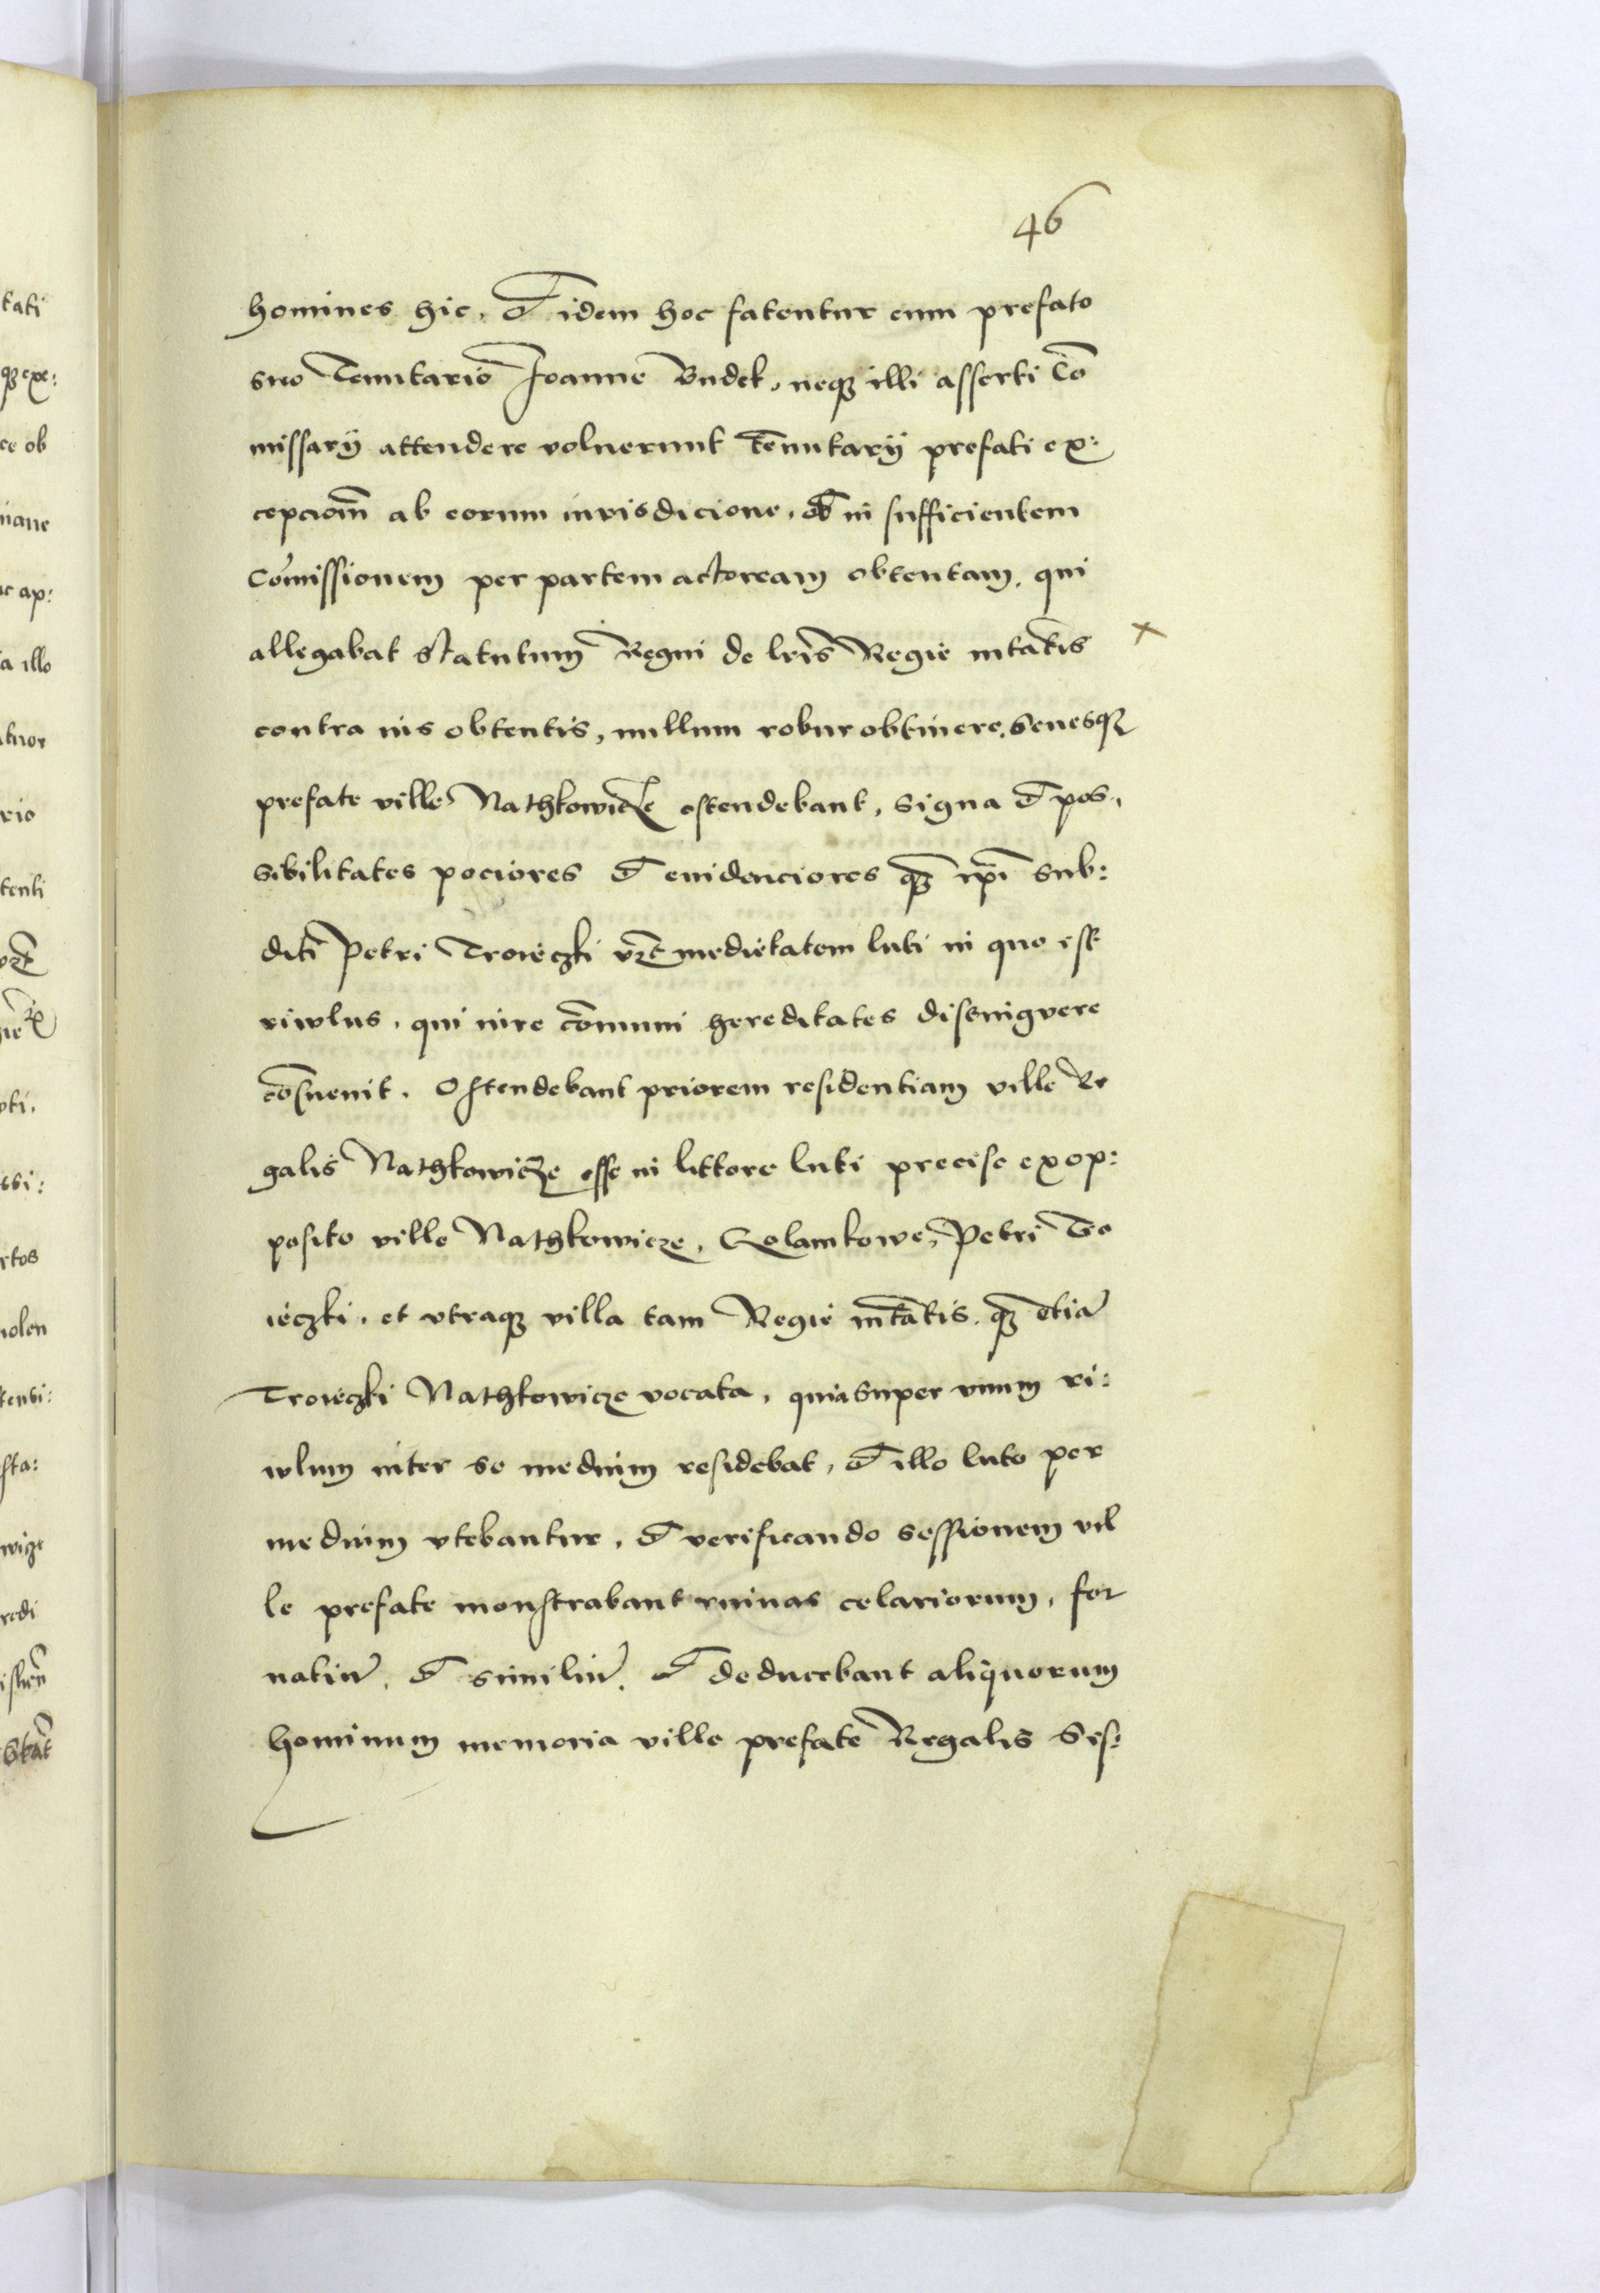 46
homines hic. et idem hoc fatentur cum prefato
suo Tenutario Joanne Budek, neqz illi asserti Cō
missarÿ attendere voluerunt tēnutarÿ prefati ex:
cepcioīm ab eorum iurisdicione, ob in sufficientem
Cōmissionem per partem actoream obtentam, qui
allegabat statutum Regni de lrīs Regie mtātis x
contra ius obtentis, nullum robur obtinere, Senesqz
prefate ville Nathkowicze ostendebant, signa et pos,
sibilitates pociores et euidenciores qz ipī sub:
diti Petri Troieczki vzt medietatem luti in quo est
riwlus, qui iure cōmuni hereditates distingvere
cōsueuit. Ostendebant priorem residentiam ville Re
galis Nathkowicze esse in littore luti precise ex op:
posito ville Nathkowicze, Golamkowe, Petri Tro
ieczki, et vtraqz villa tam Regie mtātis qz etiā
Troieczki Nathkowicze vocata, quia super vnum ri:
wlum inter se medium residebat, et illo luto per
medium vtebantur, et verificando sessionem vil
le prefate monstrabant ruinas celariorum, for
natiū, et similiū, et deducebant aliquorum
hominum memoria ville prefate Regalis Ses: